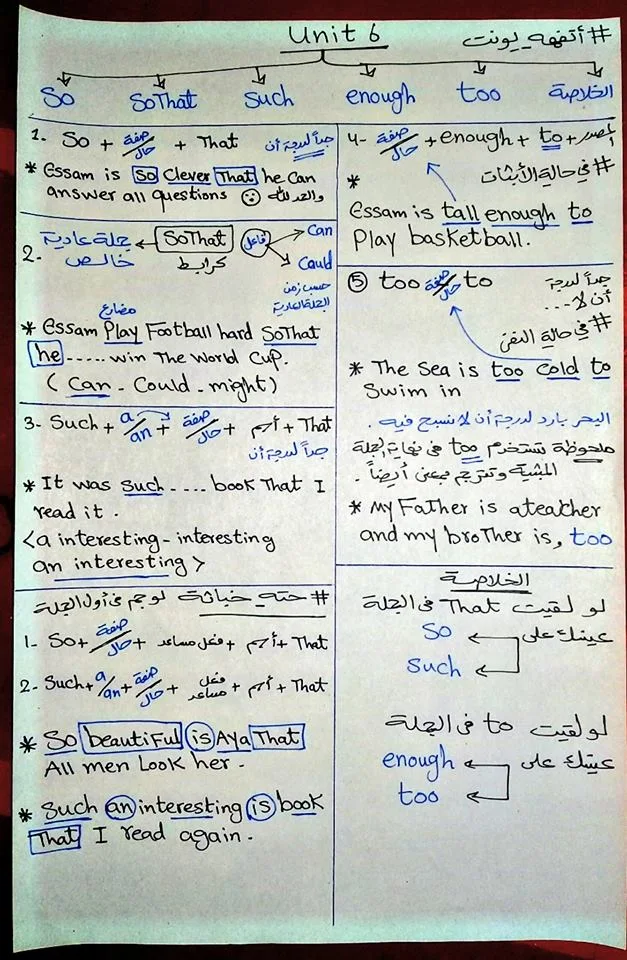 Unit 6
#أتفهه_يونت
So SoThat such enough too الخلاصة
1. So + صفة/حال + That جداً لدرجة أن
* Essam is So Clever That he Can
answer all questions والحمد لله
2. جملة عادية خالص ← SoThat فاعل Can
كرابط Could
حسب زمن الجملة العادية
مضارع
* Essam Play Football hard SoThat
he ..... win The World Cup.
( Can - Could - might )
3- Such + a/an + صفة/حال + اسم + That
جداً لدرجة أن
* It was such ..... book That I
read it .
<a interesting - interesting
an interesting >
#حته_خباثة لو جم فى أول الجملة
1- So + صفة/حال + فعل مساعد + اسم + That
2- Such + a/an + صفة/حال + فعل مساعد + اسم + That
* So beautiful is Aya That
All men Look her .
* Such an interesting is book
That I read again .
4- صفة/حال + enough + to + المصدر
#فى حالة الأثبات
*
Essam is tall enough to
Play basketball.
5 too صفة/حال to جداً لدرجة
أن لا ....
#فى حالة النفى
* The Sea is too cold to
Swim in
البحر بارد لدرجة أن لا نسبح فيه .
ملحوظة تستخدم too فى نهاية الجملة
المثبتة وتترجم بمعنى أيضاً .
* My Father is ateatcher
and my brother is, too
الخلاصة
لو لقيت That فى الجملة
عينك على So
such
لو لقيت to فى الجملة
عينك على enough
too